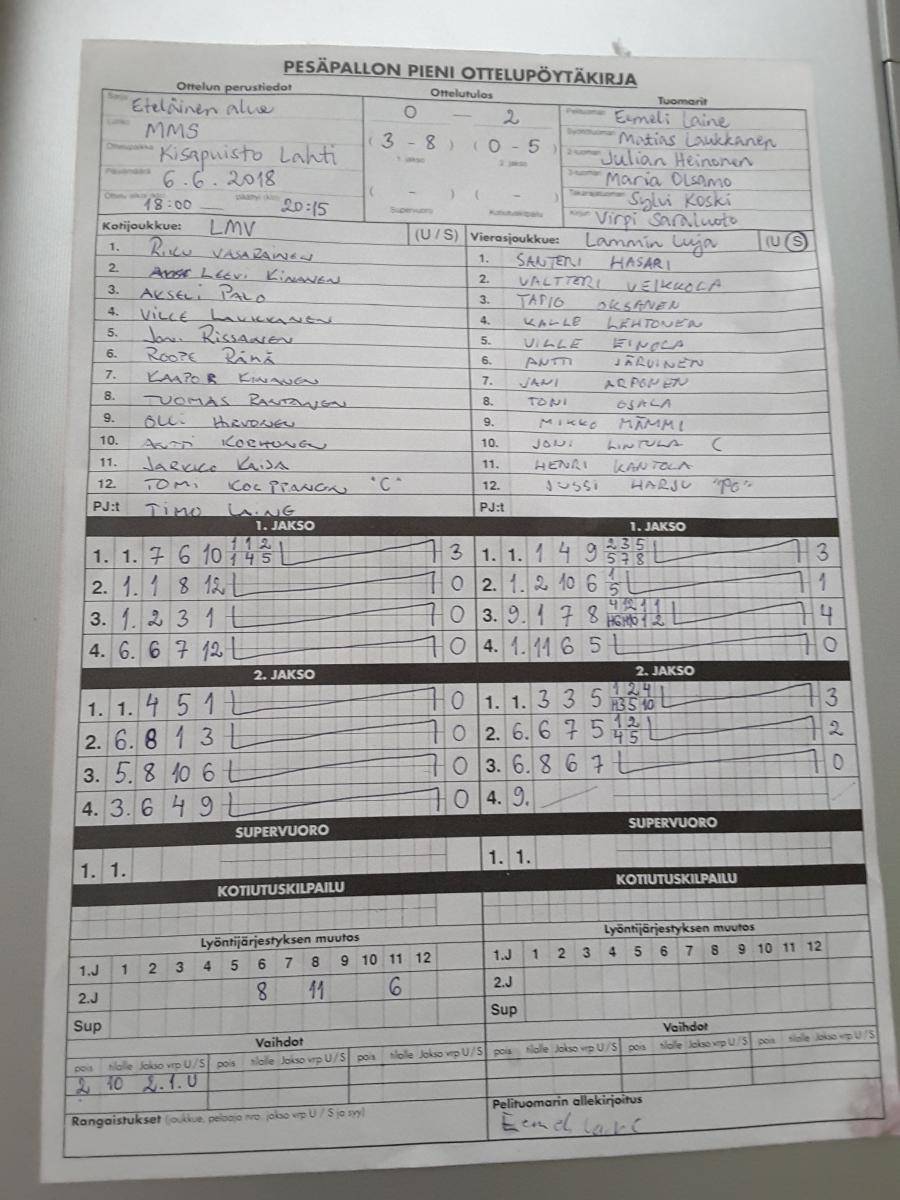 PESÄPALLON PIENI OTTELUPÖYTÄKIRJA
Ottelun perustiedot Ottelutulos Tuomarit
Sarja Eteläinen alue
Lohko MMS
Ottelupaikka Kisapuisto Lahti
Päivämäärä 6.6.2018
Ottelu alkoi (klo) 18:00 — päättyi (klo) 20:15
0 — 2
(3 - 8) (0 - 5)
1. jakso 2. jakso
( - ) ( - )
Supervuoro Kotiutuskilpailu
Pelituomari Eemeli Laine
Syöttötuomari Matias Laukkanen
2-tuomari Julian Heinonen
3-tuomari Maria Olsamo
Takarajatuomari Sylvi Koski
Kirjuri Virpi Saraluoto
Kotijoukkue: LMV (U / S)
1. RIKU VASARAINEN
2. LEEVI KINANEN
3. AKSELI PALO
4. VILLE LAUKKANEN
5. JONI RISSANEN
6. ROOPE RÄMÄ
7. KAAPO KINANEN
8. TUOMAS RANTANEN
9. OLLI HIRVONEN
10. ANTTI KORHONEN
11. JARKKO KAISA
12. TOMI "C"
PJ:t TIMO LAINE
Vierasjoukkue: Lammin Luja (U / S)
1. SANTERI HASARI
2. VALTTERI VEIKKOLA
3. TAPIO OKSANEN
4. KALLE LEHTONEN
5. VILLE EINOLA
6. ANTTI JÄRVINEN
7. JANI ARPONEN
8. TONI OSALA
9. MIKKO MÄMMI
10. JONI LINTULA C
11. HENRI KANTOLA
12. JUSSI HARJU "PG"
PJ:t
1. JAKSO
1. 1. 7 6 10 1 1 2 3
1 4 5
2. 1. 1 8 12 0
3. 1. 2 3 1 0
4. 6. 6 7 12 0
1. JAKSO
1. 1. 1 4 9 2 3 5 3
5 7 8
2. 1. 2 10 6 1 1
5
3. 9. 1 7 8 4 12 1 1 4
4. 1. 11 6 5 0
2. JAKSO
1. 1. 4 5 1 0
2. 6. 8 1 3 0
3. 5. 8 10 6 0
4. 3. 6 4 9 0
2. JAKSO
1. 1. 3 3 5 1 2 4 3
3 5 10
2. 6. 6 7 5 1 2 2
4 5
3. 6. 8 6 7 0
4. 9.
SUPERVUORO
1. 1.
SUPERVUORO
1. 1.
KOTIUTUSKILPAILU
KOTIUTUSKILPAILU
Lyöntijärjestyksen muutos
1.J 1 2 3 4 5 6 7 8 9 10 11 12
2.J 8 11 6
Sup
Lyöntijärjestyksen muutos
1.J 1 2 3 4 5 6 7 8 9 10 11 12
2.J
Sup
Vaihdot
pois tilalle Jakso vrp U / S pois tilalle Jakso vrp U / S pois tilalle Jakso vrp U / S
2 10 2.1.U
Vaihdot
pois tilalle Jakso vrp U / S pois tilalle Jakso vrp U / S pois tilalle Jakso vrp U / S
Rangaistukset (joukkue, pelaaja nro, jakso vrp U / S ja syy)
Pelituomarin allekirjoitus